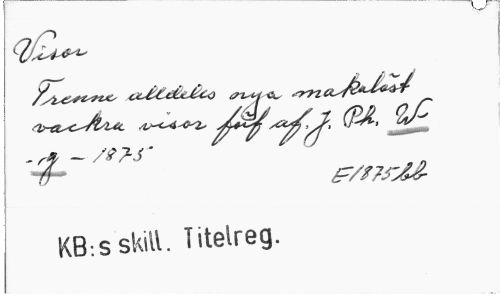 Visor
Trenne alldeles nya makalöst
vackra visor förf af. J. Ph. W-
-g - 1875
E1875bb
KB:s skill. Titelreg.